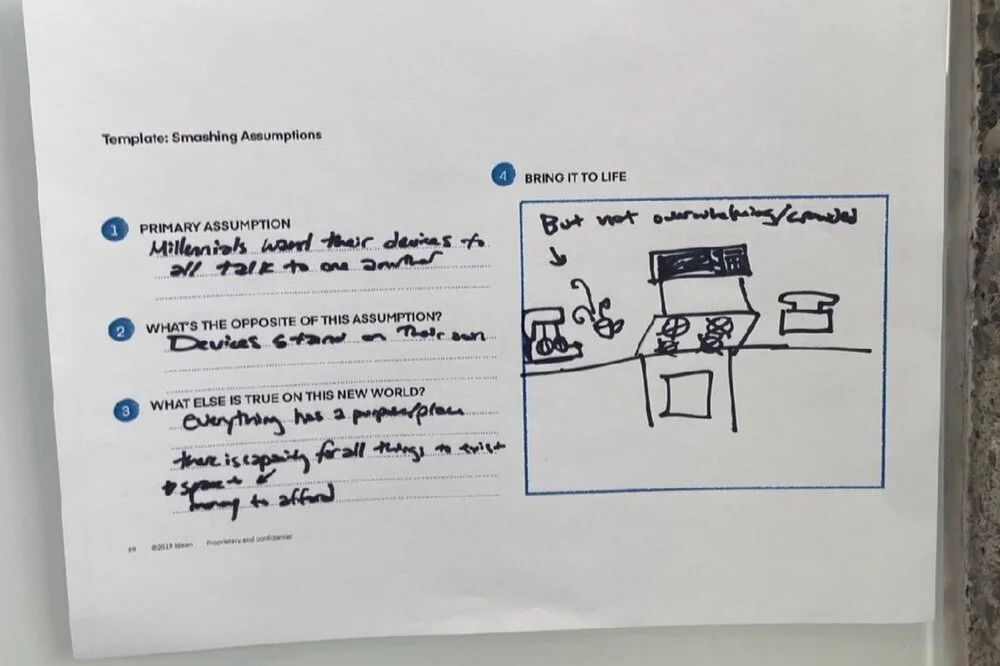 Template: Smashing Assumptions
1 PRIMARY ASSUMPTION
Millennials want their devices to
all talk to one another
2 WHAT'S THE OPPOSITE OF THIS ASSUMPTION?
Devices stand on their own
3 WHAT ELSE IS TRUE ON THIS NEW WORLD?
Everything has a purpose/place
there is capacity for all things to exist
space +
money to afford
©2019 Idean Proprietary and confidential
4 BRING IT TO LIFE
But not overwhelming/crowded